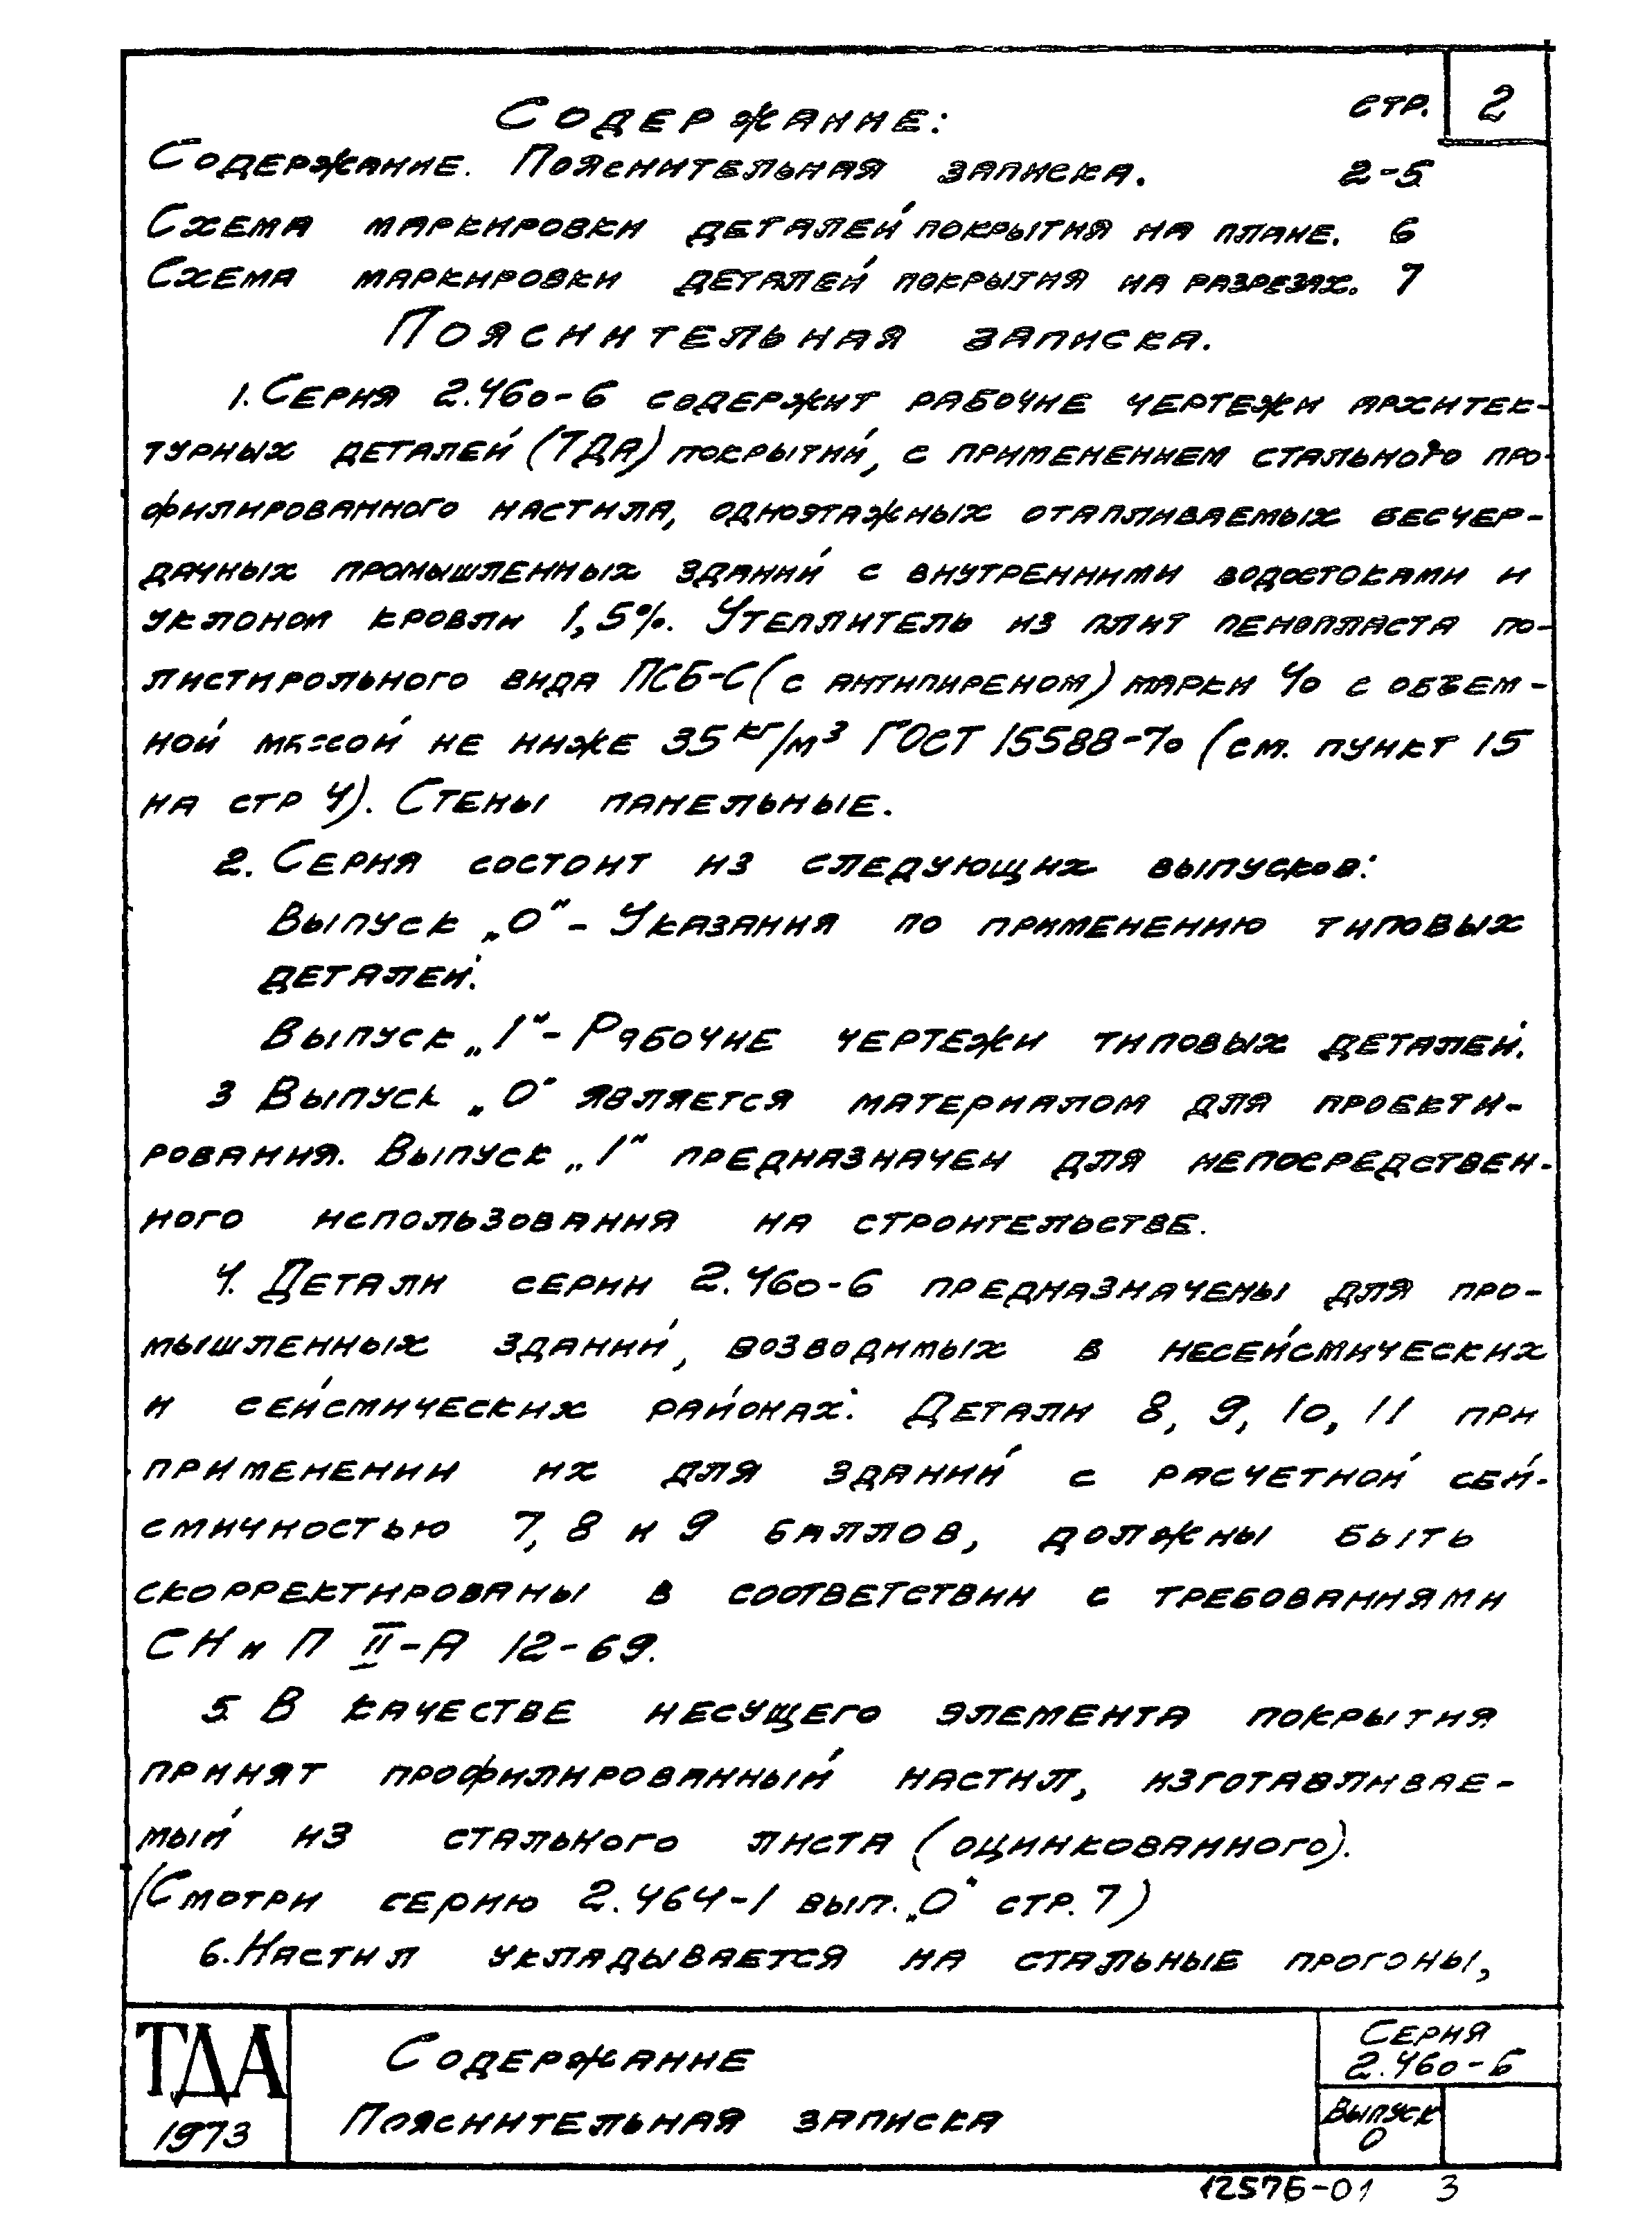 стр. 2
Содержание:
Содержание. Пояснительная записка. 2-5
Схема маркировки деталей покрытия на плане. 6
Схема маркировки деталей покрытия на разрезах. 7
Пояснительная записка.
1. Серия 2.460-6 содержит рабочие чертежи архитек-
турных деталей (ТДА) покрытий, с применением стального про-
филированного настила, одноэтажных отапливаемых бесчер-
дачных промышленных зданий с внутренними водостоками и
уклоном кровли 1,5%. Утеплитель из плит пенопласта по-
листирольного вида ПСБ-С (с антипиреном) марки 40 с объем-
ной массой не ниже 35 кг/м³ ГОСТ 15588-70 (см. пункт 15
на стр 4). Стены панельные.
2. Серия состоит из следующих выпусков:
Выпуск „0" - Указания по применению типовых
деталей.
Выпуск „1" - Рабочие чертежи типовых деталей.
3 Выпуск „0" является материалом для проекти-
рования. Выпуск „1" предназначен для непосредствен-
ного использования на строительстве.
4. Детали серии 2.460-6 предназначены для про-
мышленных зданий, возводимых в несейсмических
и сейсмических районах. Детали 8, 9, 10, 11 при
применении их для зданий с расчетной сей-
смичностью 7, 8 и 9 баллов, должны быть
скорректированы в соответствии с требованиями
СНиП II-А 12-69.
5. В качестве несущего элемента покрытия
принят профилированный настил, изготавливае-
мый из стального листа (оцинкованного).
(Смотри серию 2.464-1 вып. „0" стр. 7)
6. Настил укладывается на стальные прогоны,
ТДА
1973
Содержание
Пояснительная записка
Серия
2.460-6
Выпуск
0
12576-01 3